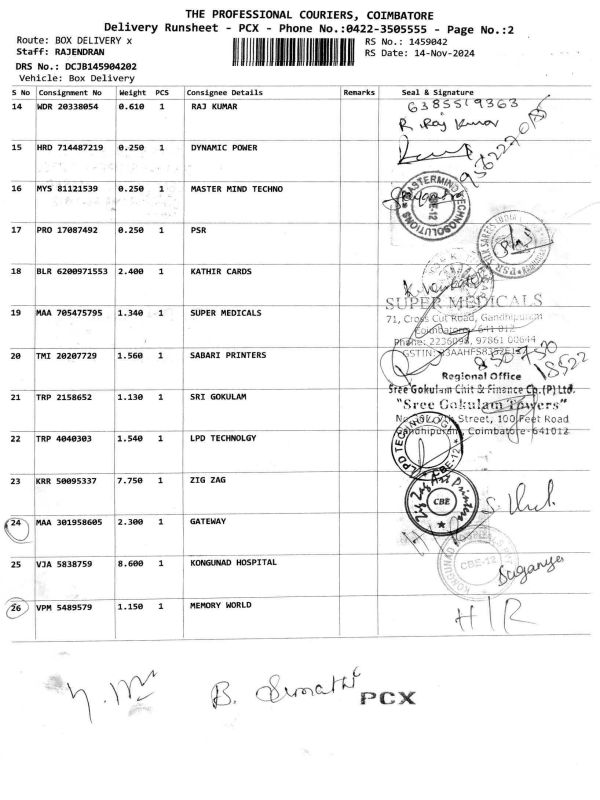 THE PROFESSIONAL COURIERS, COIMBATORE
Delivery Runsheet - PCX - Phone No.:0422-3505555 - Page No.:2
Route: BOX DELIVERY x
RS No.: 1459042
Staff: RAJENDRAN
RS Date: 14-Nov-2024
DRS No.: DCJB145904202
Vehicle: Box Delivery
S No Consignment No Weight PCS Consignee Details Remarks Seal & Signature
14 WDR 20338054 0.610 1 RAJ KUMAR 6385519363
R. Raj Kumar
15 HRD 714487219 0.250 1 DYNAMIC POWER
16 MYS 81121539 0.250 1 MASTER MIND TECHNO
MASTERMIND TECHNOSOLUTIONS CBE-12
17 PRO 17087492 0.250 1 PSR
PSR SILK SAREES
18 BLR 6200971553 2.400 1 KATHIR CARDS
19 MAA 705475795 1.340 1 SUPER MEDICALS
SUPER MEDICALS
71, Cross Cut Road, Gandhipuram
Coimbatore - 641 012
Phone: 2236098, 97861 00644
20 TMI 20207729 1.560 1 SABARI PRINTERS
Regional Office
21 TRP 2158652 1.130 1 SRI GOKULAM
Sree Gokulam Chit & Finance Co.(P)Ltd.
"Sree Gokulam Towers"
Street, 100 Feet Road
Gandhipuram, Coimbatore-641012
22 TRP 4040303 1.540 1 LPD TECHNOLGY
LPD TECHNOLOGY CBE-12
23 KRR 50095337 7.750 1 ZIG ZAG
Zig Zag Art Printers CBE
24 MAA 301958605 2.300 1 GATEWAY
25 VJA 5838759 8.600 1 KONGUNAD HOSPITAL
KONGUNAD HOSPITALS CBE-12
Suganya
26 VPM 5489579 1.150 1 MEMORY WORLD
H/R
B. Sumathi
PCX